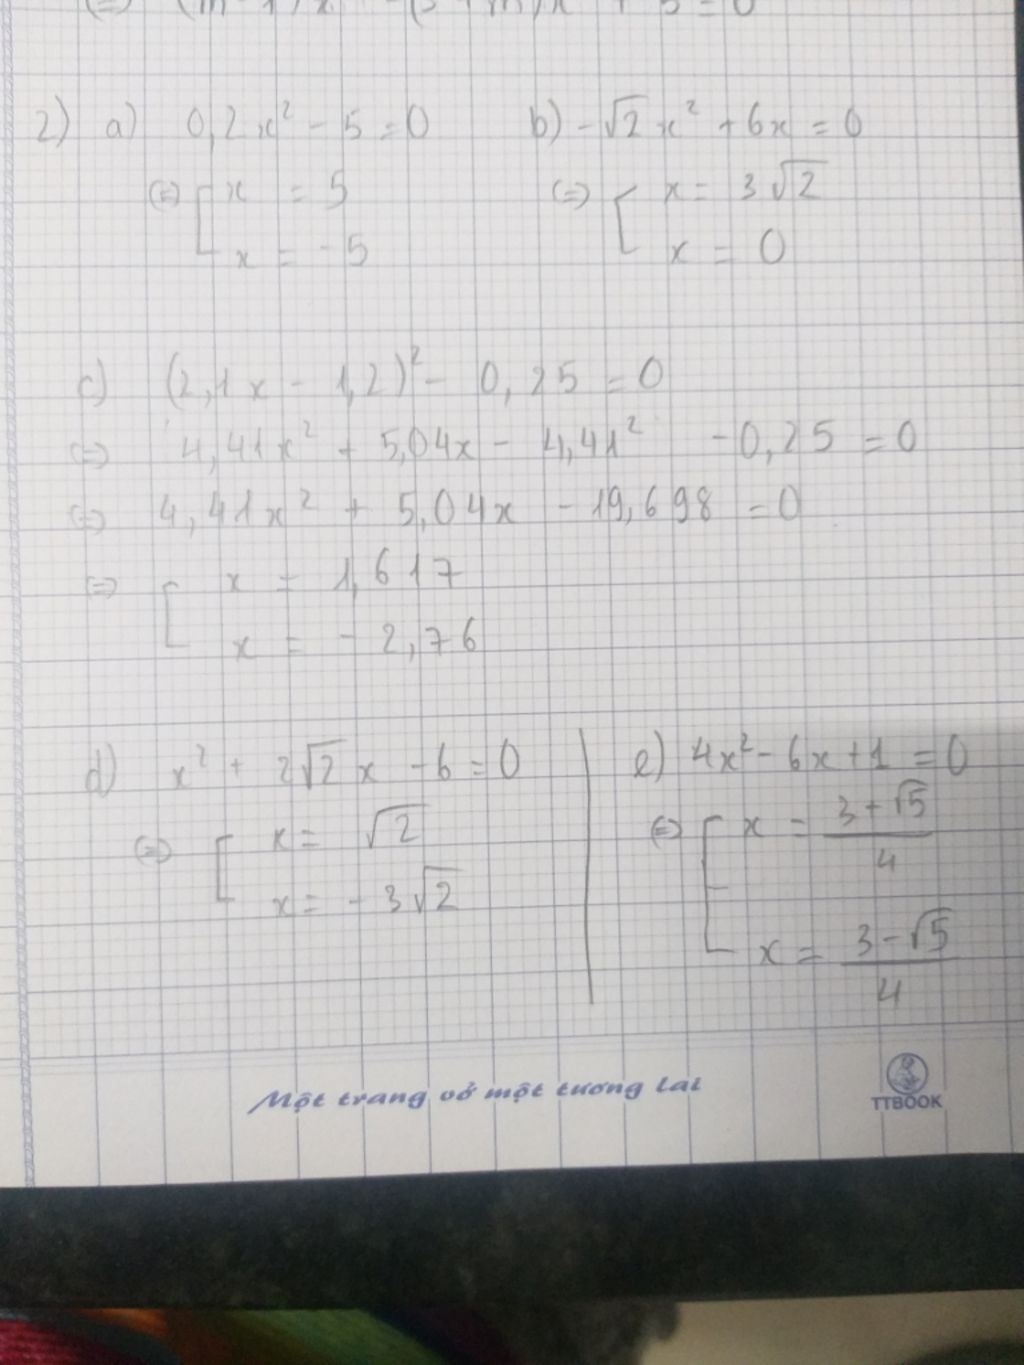 2) a) 0,2x² - 5 = 0 b) -√2 x² + 6x = 0
(=) [ x = 5 (=) [ x = 3√2
x = -5 x = 0
c) (2,1x - 1,2)² - 0,25 = 0
(=) 4,41x² + 5,04x - 4,41² - 0,25 = 0
(=) 4,41x² + 5,04x - 19,698 = 0
(=) [ x = 1,617
x = -2,76
d) x² + 2√2 x - 6 = 0
(=) [ x = √2
x = -3√2
e) 4x² - 6x + 1 = 0
(=) [ x = (3 + √5)/4
x = (3 - √5)/4
Một trang vở một tương lai
TTBOOK